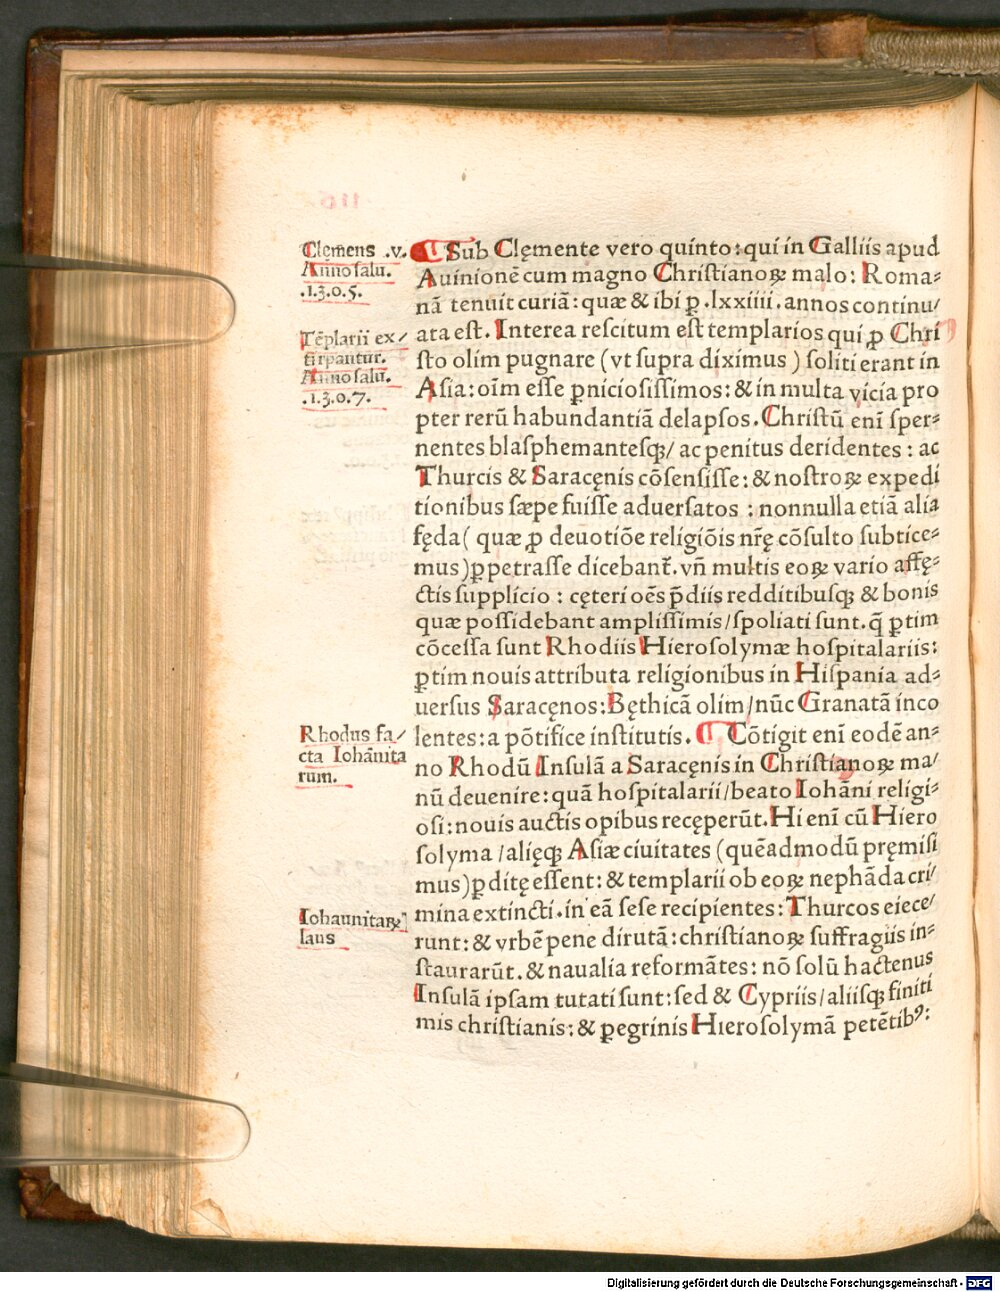 Clemens .v.
Anno salu.
.1.3.0.5.
Tēplarii ex/
tirpantur.
Anno salu.
.1.3.0.7.
Rhodus fa/
cta Iohānita
rum.
Iohannitaꝝ
laus
¶ Sub Clemente vero quinto: qui in Galliis apud
Auinionē cum magno Christianoꝝ malo: Roma⸗
nā tenuit curiā: quæ & ibi ꝑ .lxxiiii. annos continu/
ata est. Interea rescitum est templarios qui ꝓ Chri
sto olim pugnare (vt supra diximus) soliti erant in
Asia: oīm esse ꝑniciosissimos: & in multa vicia pro
pter rerū habundantiā delapsos. Christū enī sper⸗
nentes blasphemantesqꝫ/ ac penitus deridentes: ac
Thurcis & Saracęnis cōsensisse: & nostroꝝ expedi
tionibus sæpe fuisse aduersatos: nonnulla etiā alia
fęda (quæ ꝓ deuotiōe religiōis nr̄ę cōsulto subtice⸗
mus) ꝑpetrasse dicebant̄. vn̄ multis eoꝝ vario affę⸗
ctis supplicio: cęteri oēs p̄diis redditibusqꝫ & bonis
quæ possidebant amplissimis/ spoliati sunt. q̄ ꝑtim
cōcessa sunt Rhodiis Hierosolymæ hospitalariis:
ꝑtim nouis attributa religionibus in Hispania ad⸗
uersus Saracęnos: Bęthicā olim/ nūc Granatā inco
lentes: a pōtifice institutis. ¶ Cōtigit enī eodē an⸗
no Rhodū Insulā a Saracęnis in Christianoꝝ ma/
nū deuenire: quā hospitalarii/ beato Iohāni religi⸗
osi: nouis auctis opibus recęperūt. Hi enī cū Hiero
solyma/ alięqꝫ Asiæ ciuitates (quēadmodū pręmisi
mus) ꝑditę essent: & templarii ob eoꝝ nephāda cri/
mina extincti. in eā sese recipientes: Thurcos eiece/
runt: & vrbē pene dirutā: christianoꝝ suffragiis in⸗
staurarūt. & naualia reformātes: nō solū hactenus
Insulā ipsam tutati sunt: sed & Cypriis/ aliisqꝫ finiti
mis christianis: & ꝑegrinis Hierosolymā petētibꝰ:
Digitalisierung gefördert durch die Deutsche Forschungsgemeinschaft - DFG